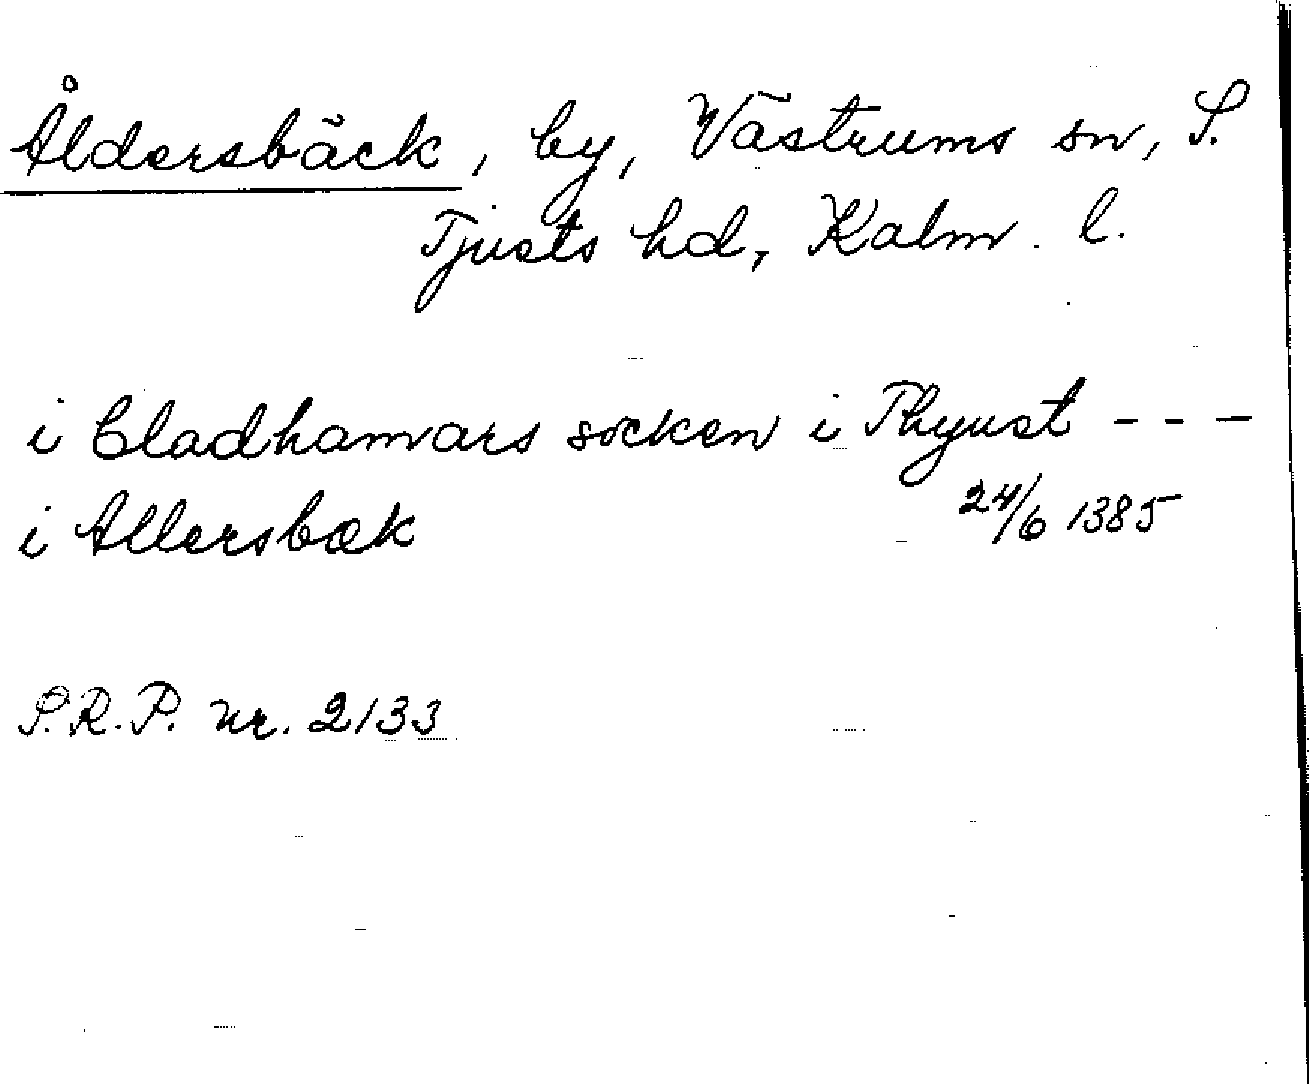 Åldersbäck, by, Västrums sn, S.
Tjusts hd, Kalm. l.
i bladhamars socken i Thyust - - -
i Allersbæk 24/6 1385
S.R.P. nr. 2133